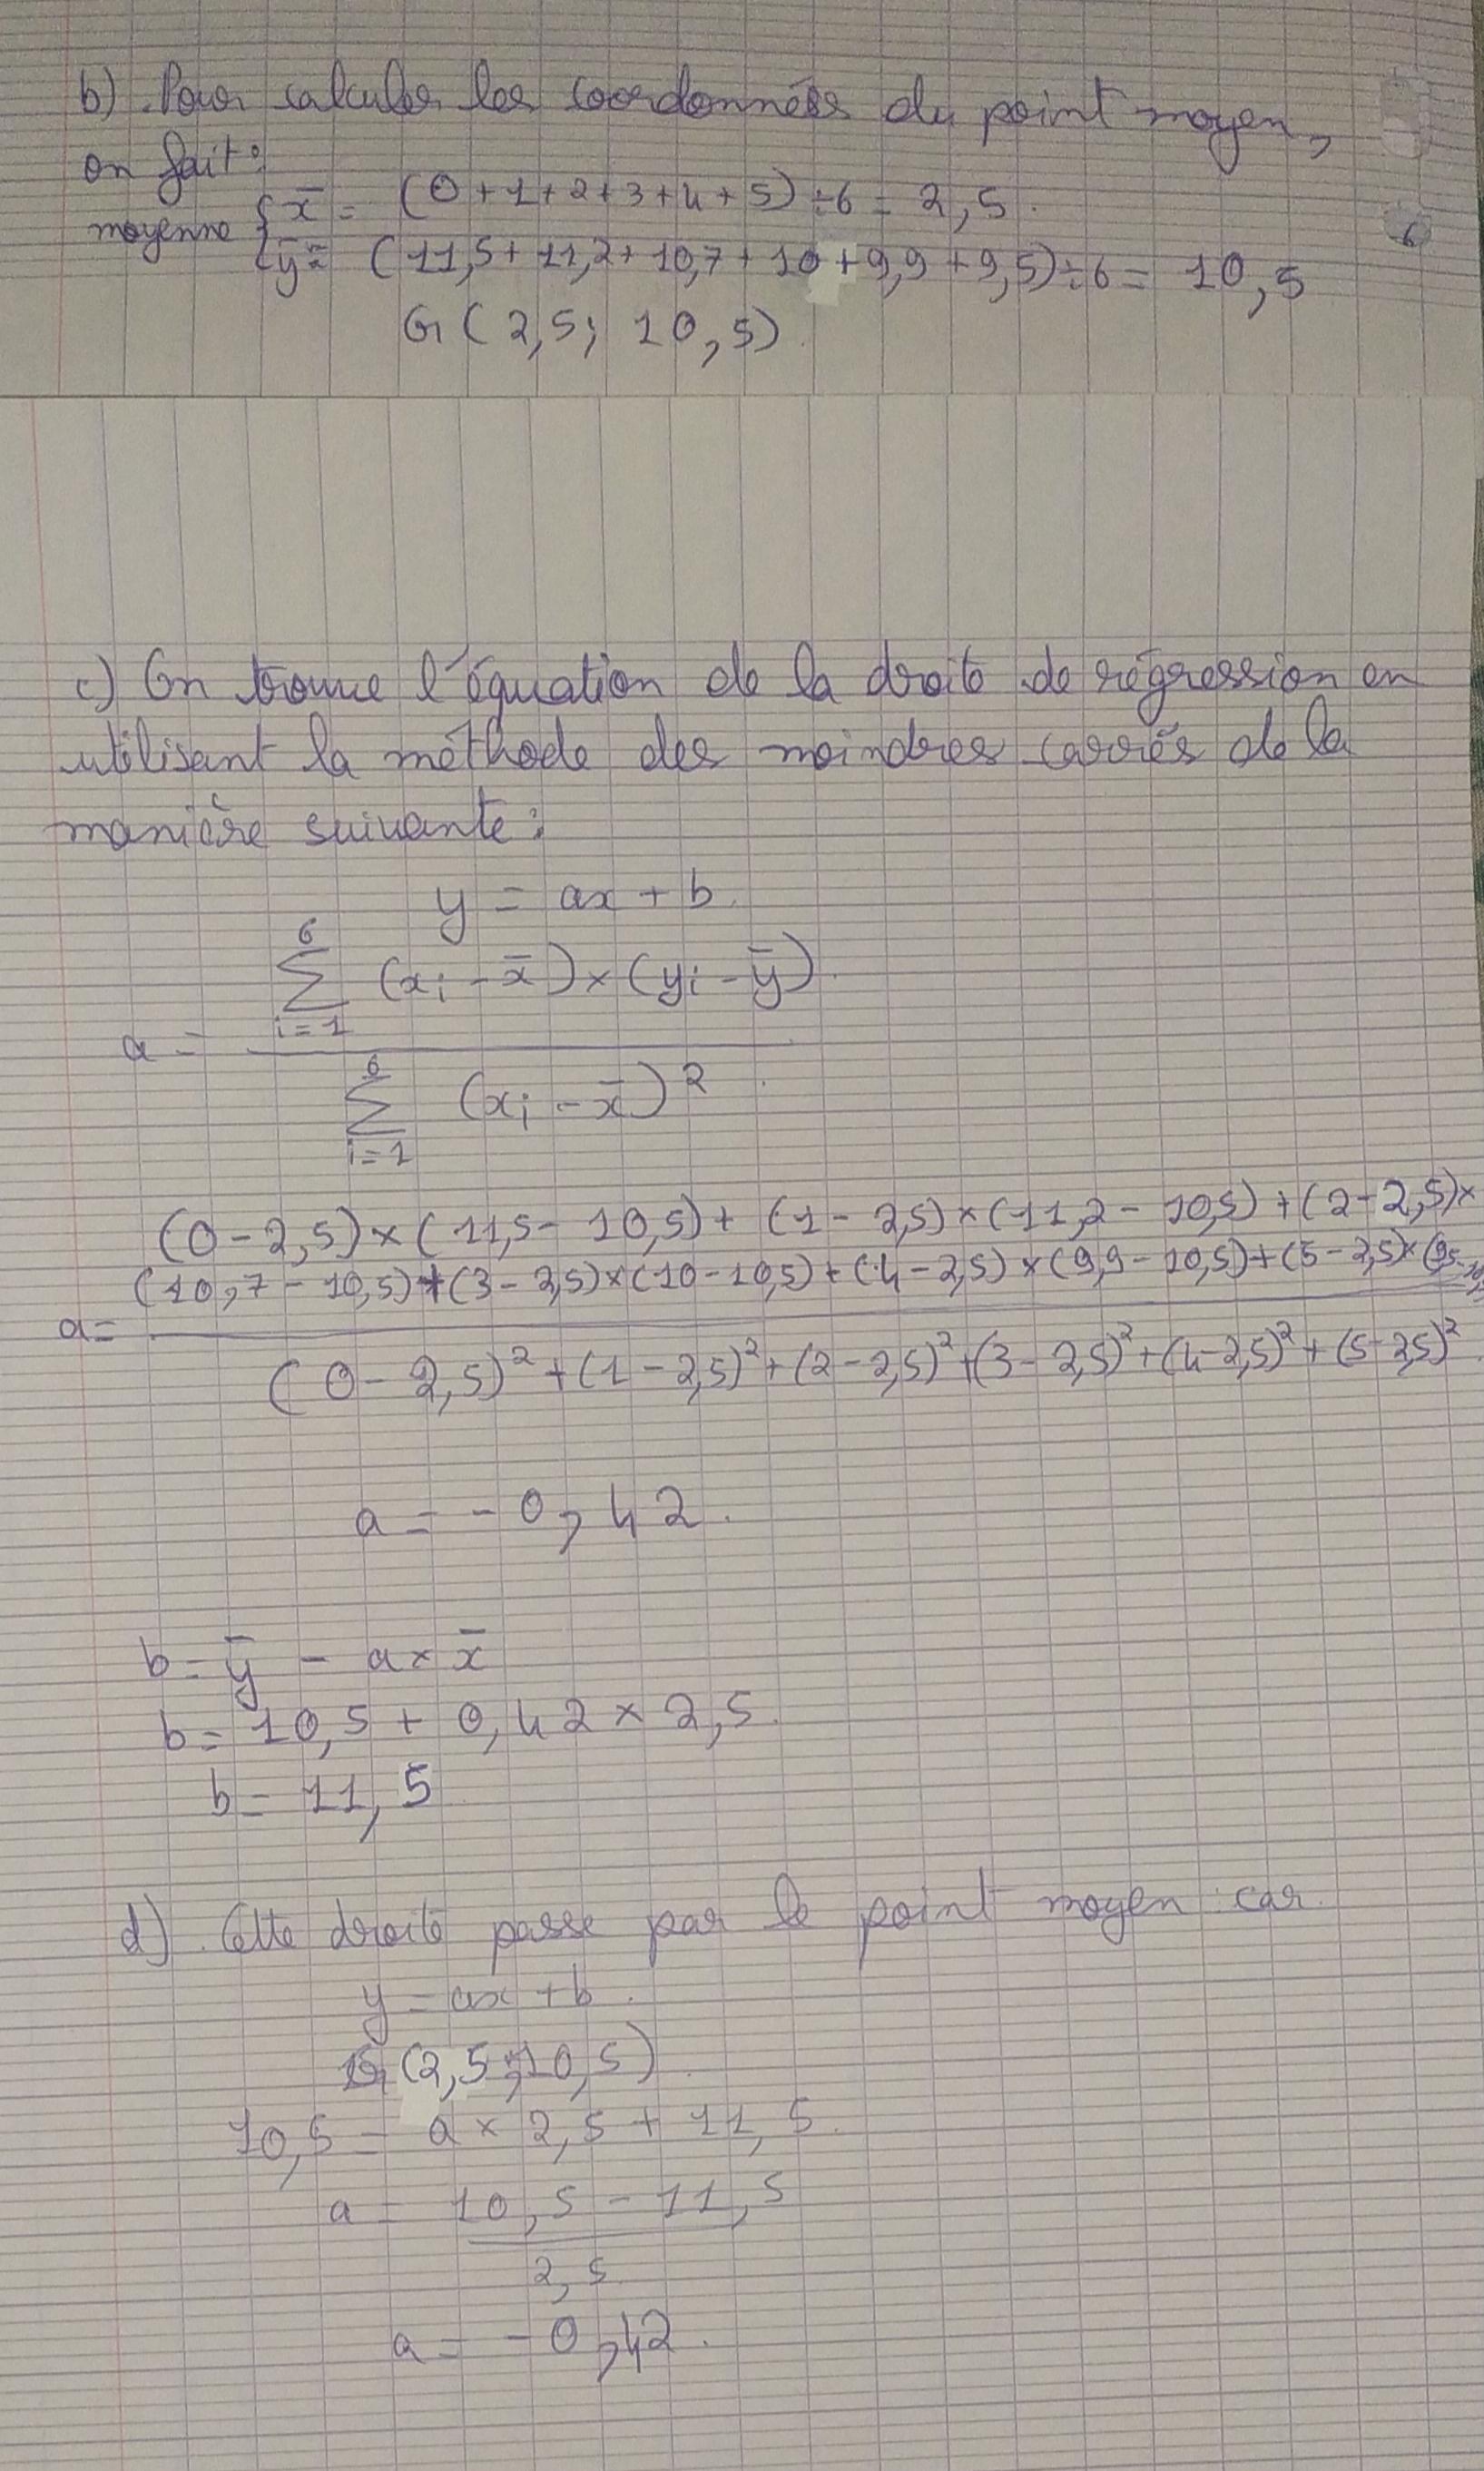 b) Pour calculer les coordonnées du point moyen,
on fait :
moyenne { x̄ = (0+1+2+3+4+5) ÷ 6 = 2,5.
ȳ = (11,5+11,2+10,7+10+9,9+9,5) ÷ 6 = 10,5
G (2,5; 10,5).
c) On trouve l'équation de la droite de régression en
utilisant la méthode des moindres carrés de la
manière suivante :
y = ax + b.
a = ∑_{i=1}^{6} (xi - x̄) × (yi - ȳ).
∑_{i=1}^{6} (xi - x̄)²
(0-2,5)×(11,5-10,5)+(1-2,5)×(11,2-10,5)+(2-2,5)×
a= (10,7-10,5)+(3-2,5)×(10-10,5)+(4-2,5)×(9,9-10,5)+(5-2,5)×(9,5-
(0-2,5)²+(1-2,5)²+(2-2,5)²+(3-2,5)²+(4-2,5)²+(5-2,5)²
a = -0,42.
b = ȳ - a × x̄
b = 10,5 + 0,42 × 2,5.
b = 11,5
d) Cette droite passe par le point moyen car.
y = ax + b.
G (2,5; 10,5)
10,5 = a × 2,5 + 11,5.
a = 10,5 - 11,5
2,5
a = -0,42.